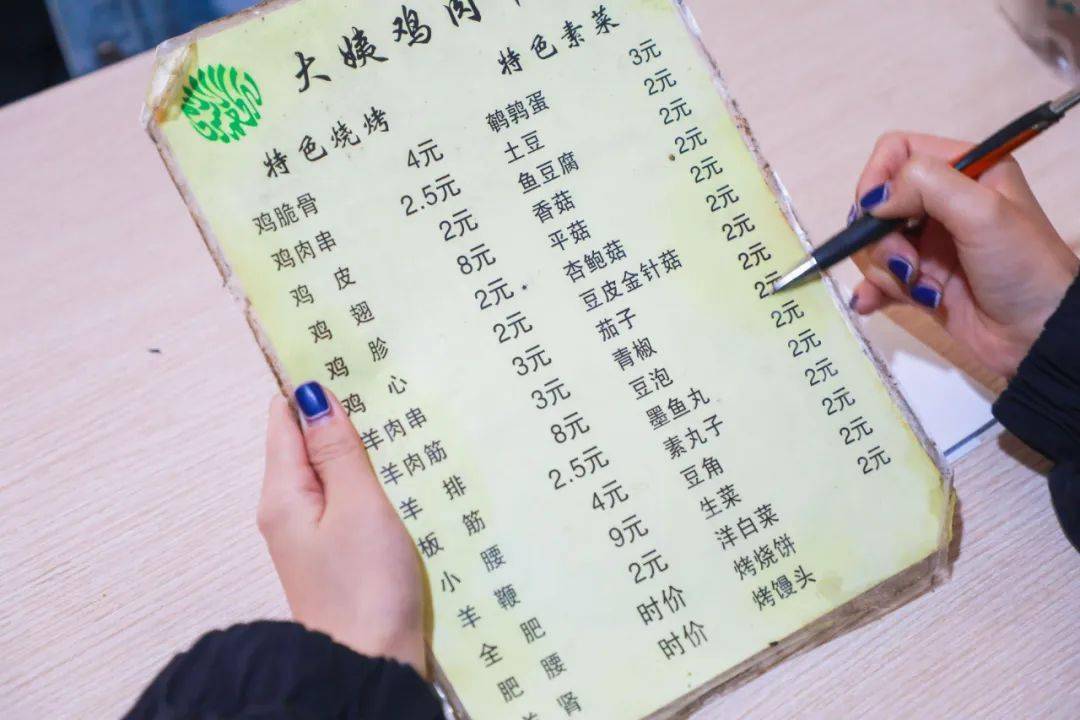 大姨鸡肉
特色烧烤
鸡脆骨 4元
鸡肉串 2.5元
鸡皮 2元
鸡翅 8元
鸡胗 2元
鸡心 2元
羊肉串 3元
羊肉筋 3元
羊排 8元
板筋 2.5元
小腰 4元
羊鞭 9元
全肥 2元
肥腰 时价
肾 时价
特色素菜
鹌鹑蛋 3元
土豆 2元
鱼豆腐 2元
香菇 2元
平菇 2元
杏鲍菇 2元
豆皮金针菇 2元
茄子 2元
青椒 2元
豆泡 2元
墨鱼丸 2元
素丸子 2元
豆角 2元
生菜 2元
洋白菜 2元
烤烧饼
烤馒头